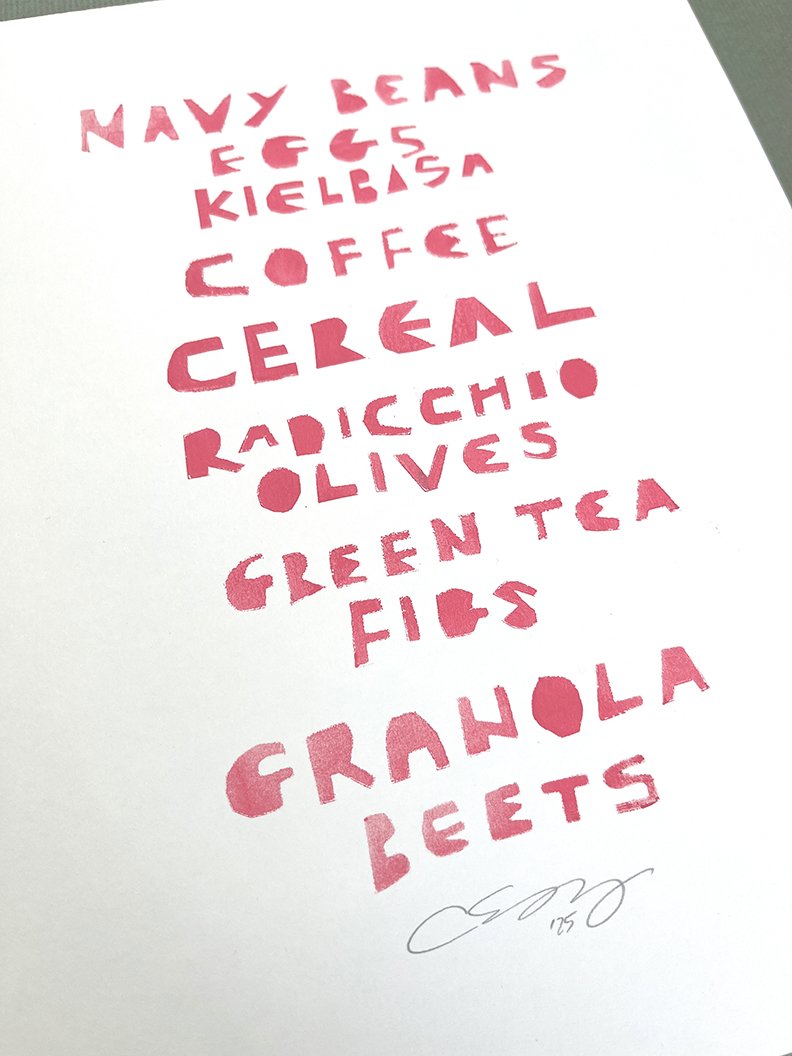 NAVY BEANS
EGGS
KIELBASA
COFFEE
CEREAL
RADICCHIO
OLIVES
GREEN TEA
FIGS
GRANOLA
BEETS
'25